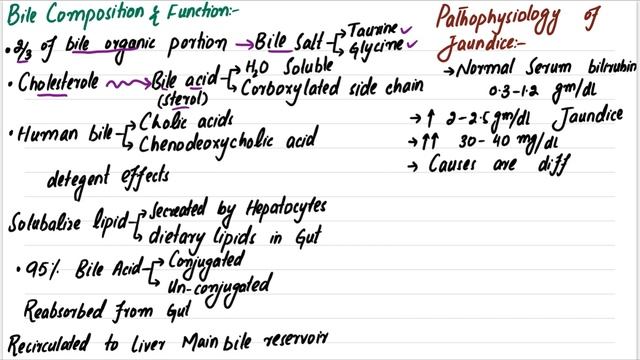 Bile Composition & Function:-
• 2/3 of bile organic portion → Bile Salt → Taurine ✓
→ Glycine ✓
• Cholesterole → Bile acid → H2O Soluble
(sterol) → Corboxylated side chain
• Human bile → Cholic acids
→ Chenodeoxycholic acid
detegent effects
Solubalize lipid → Secreated by Hepatocytes
→ dietary lipids in Gut
• 95% Bile Acid → Conjugated
→ Un-conjugated
Reabsorbed from Gut
Recirculated to Liver Main bile reservoir
Pathophysiology of
Jaundice:-
→ Normal Serum bilrubin
0.3-1.2 gm/dl
→ ↑ 2-2.5 gm/dl Jaundice
→ ↑↑ 30-40 mg/dL
→ Causes are diff